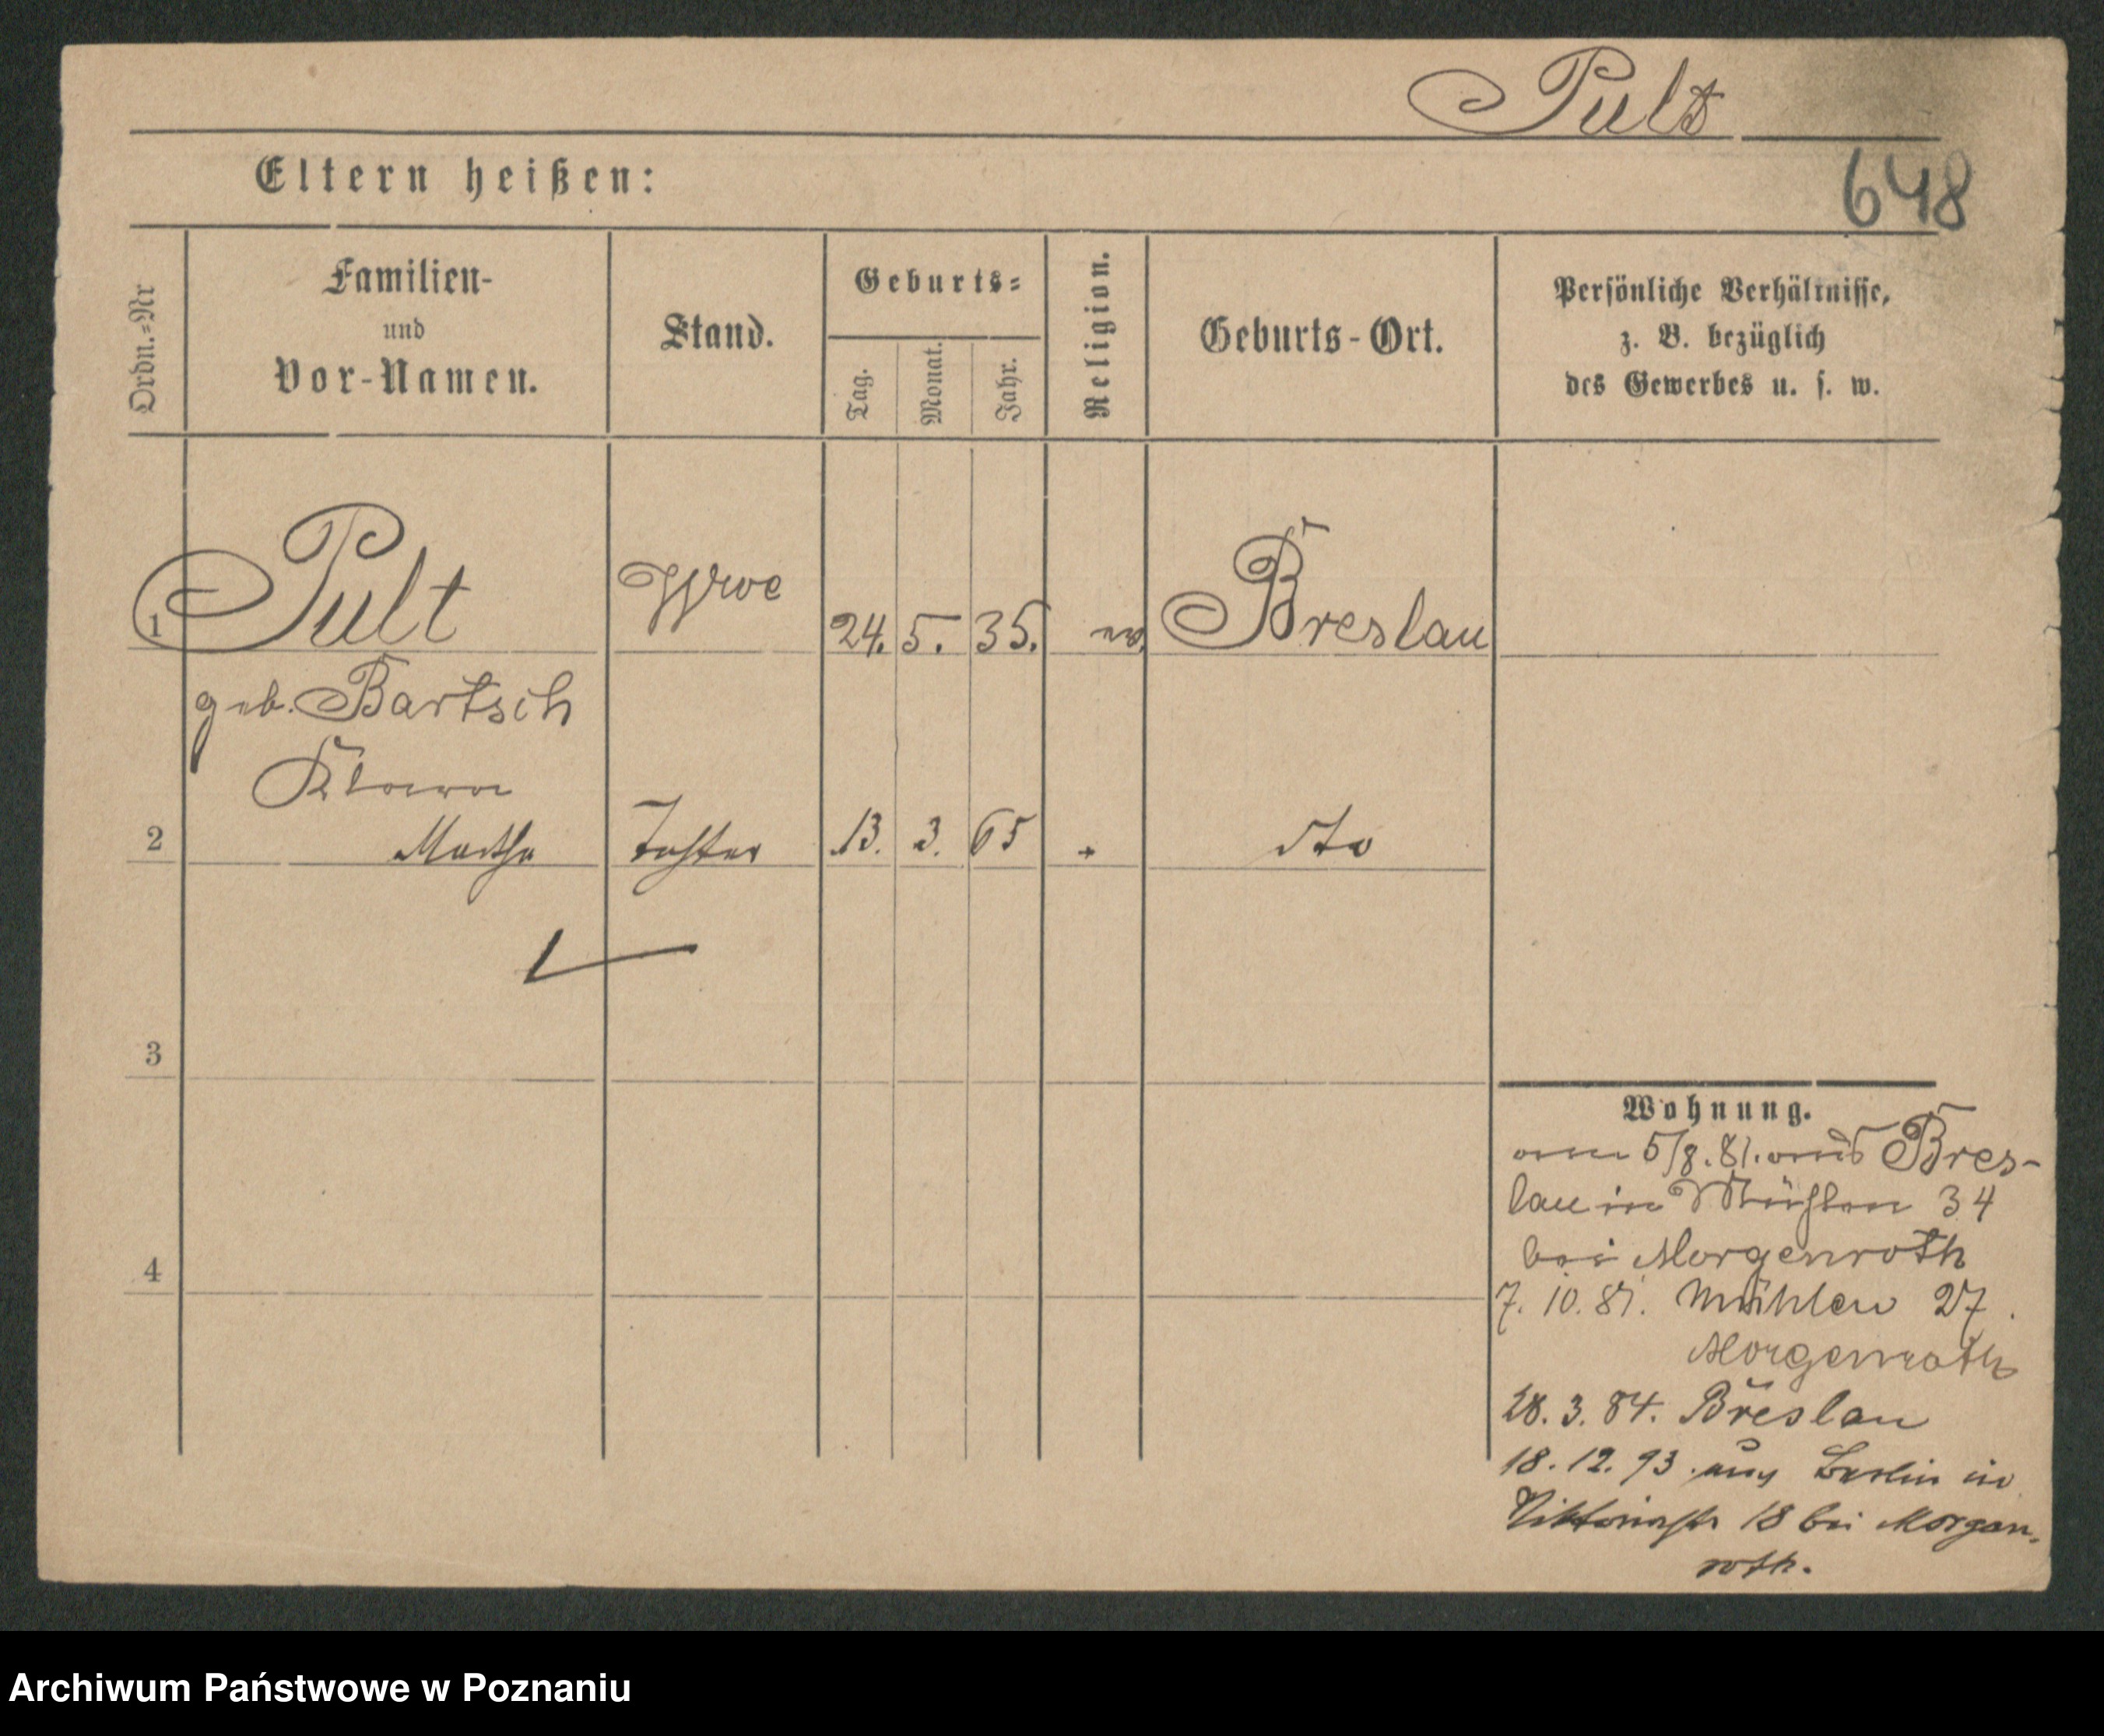 Pult
648
Eltern heißen:
Ordn.=Nr
Familien-
und
Vor-Namen.
Stand.
Geburts=
Tag.
Monat.
Jahr.
Religion.
Geburts-Ort.
Persönliche Verhältnisse,
z. B. bezüglich
des Gewerbes u. s. w.
1 Pult Wwe 24. 5. 35. ev. Breslau
geb. Bartsch
Klara
2 Martha Tochter 13. 3. 65 " dto
3
4
Wohnung.
am 5/8. 81. aus Bres-
lau in Mühlen 34
bei Morgenroth
7. 10. 81. Mühlen 27.
Morgenroth
28. 3. 84. Breslau
18. 12. 93. aus Berlin in
Viktoriastr 18 bei Morgen-
roth.
Archiwum Państwowe w Poznaniu